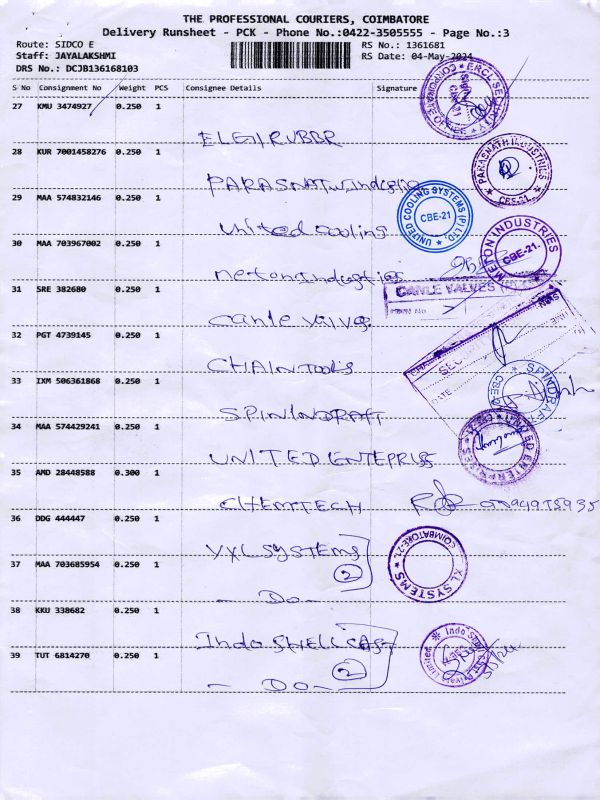 THE PROFESSIONAL COURIERS, COIMBATORE
Delivery Runsheet - PCK - Phone No.:0422-3505555 - Page No.:3
Route: SIDCO E
RS No.: 1361681
Staff: JAYALAKSHMI
RS Date: 04-May-2024
DRS No.: DCJB136168103
S No Consignment No Weight PCS Consignee Details Signature
27 KMU 3474927 0.250 1
ELGI RUBBR
28 KUR 7001458276 0.250 1
PARASNATH Industries
PARASNATH INDUSTRIES
CBE-21.
29 MAA 574832146 0.250 1
United Cooling
UNITED COOLING SYSTEMS (P) LTD.
CBE-21
30 MAA 703967002 0.250 1
meton Industries
METON INDUSTRIES
CBE-21.
31 SRE 382680 0.250 1
Canle Valves
CANLE VALVES
32 PGT 4739145 0.250 1
CHAIN Tools
SECURITY
DATE
33 IXM 506361868 0.250 1
SPININDRAFT
34 MAA 574429241 0.250 1
UNITED ENTEPRISS
UNITED ENTERPRISES
35 AMD 28448588 0.300 1
CHEMTECH
36 DDG 444447 0.250 1
YXLSYSTEMS
2
COIMBATORE-21.
XL SYSTEMS
37 MAA 703685954 0.250 1
- Do -
38 KKU 338682 0.250 1
Indo SHELL CAST
2
39 TUT 6814270 0.250 1
- Do -